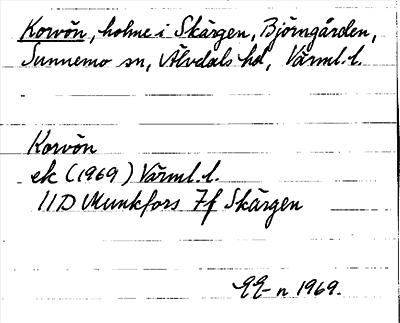 Korvön, holme i Skärgen, Björngården,
Sunnemo sn, Älvdals hd, Värml. l.
Korvön
ek (1969) Värml. l.
11D Munkfors 7f Skärgen
n 1969.